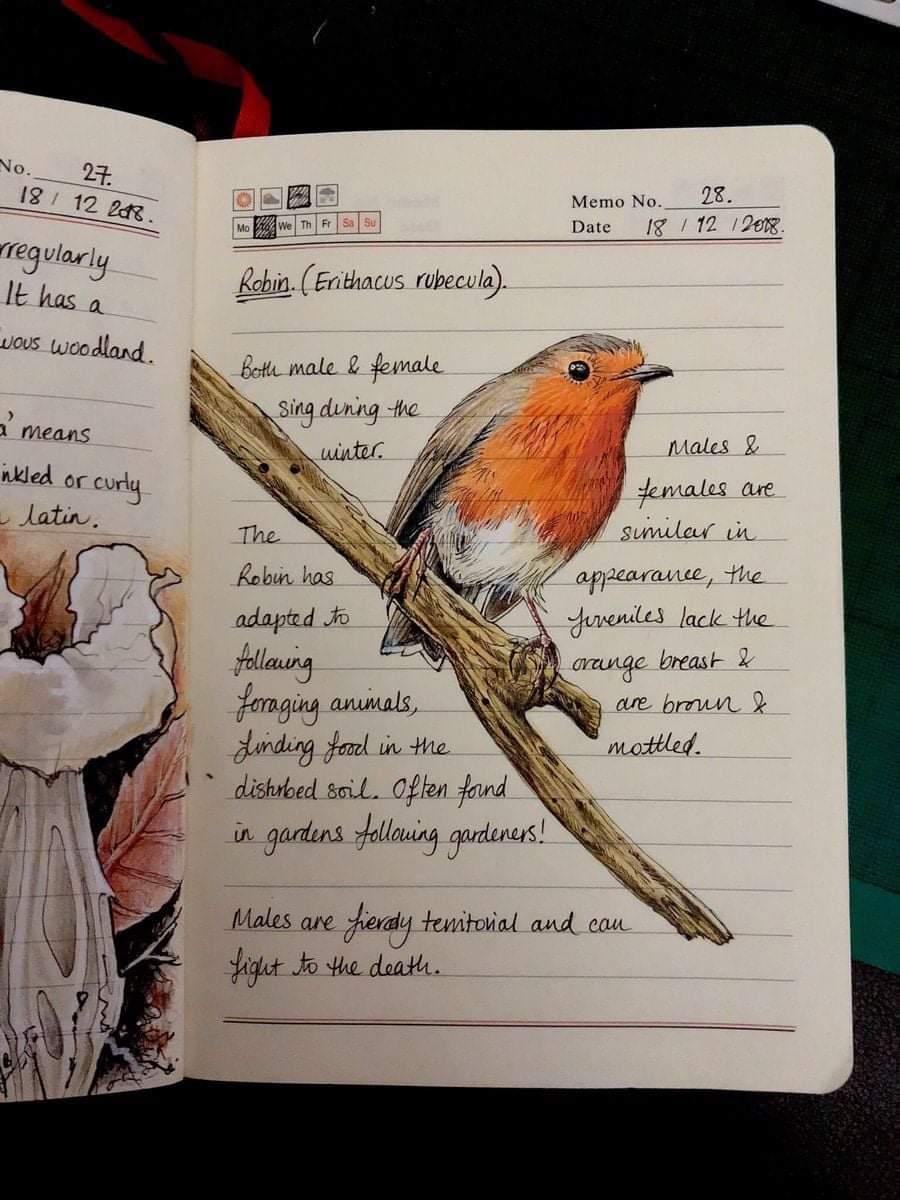 No. 27.
18 / 12 2018.
rregularly
It has a
uous woodland.
a' means
inkled or curly
latin.
Memo No. 28.
Mo We Th Fr Sa Su
Date 18 / 12 / 2018.
Robin. (Erithacus rubecula).
Both male & female
sing during the
winter.
Males &
females are
The
similar in
Robin has
appearance, the
adapted to
juveniles lack the
following
orange breast &
foraging animals,
are brown & 
finding food in the
mottled.
disturbed soil. Often found
in gardens following gardeners!
Males are fiercely territorial and can
fight to the death.